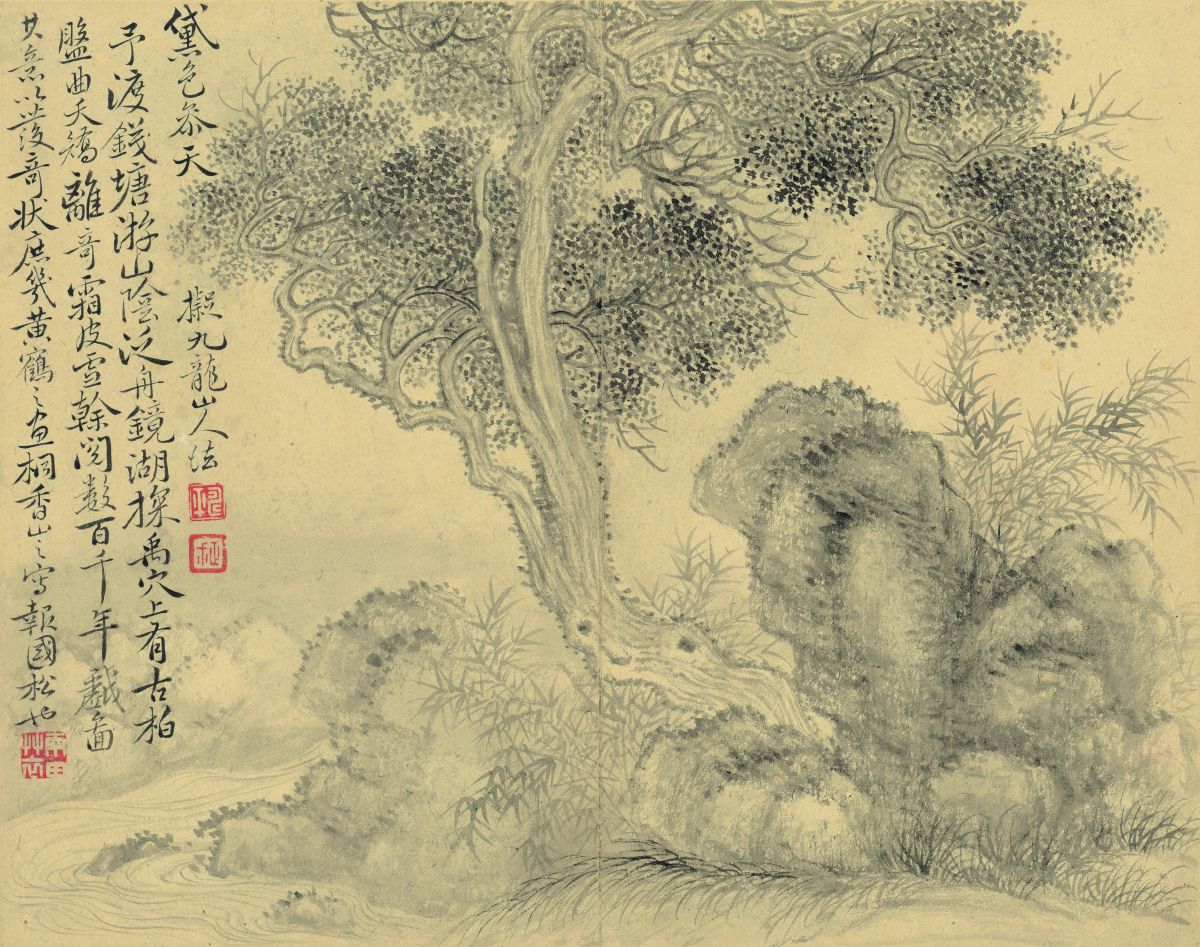 黛色參天
擬九龍山人法
予渡錢塘游山陰泛舟鏡湖探禹穴上有古柏
盤曲夭矯離奇霜皮雪幹閱數百千年戲畫
其意以發奇狀庶幾黃鶴之畫桐香山之寫報國松也